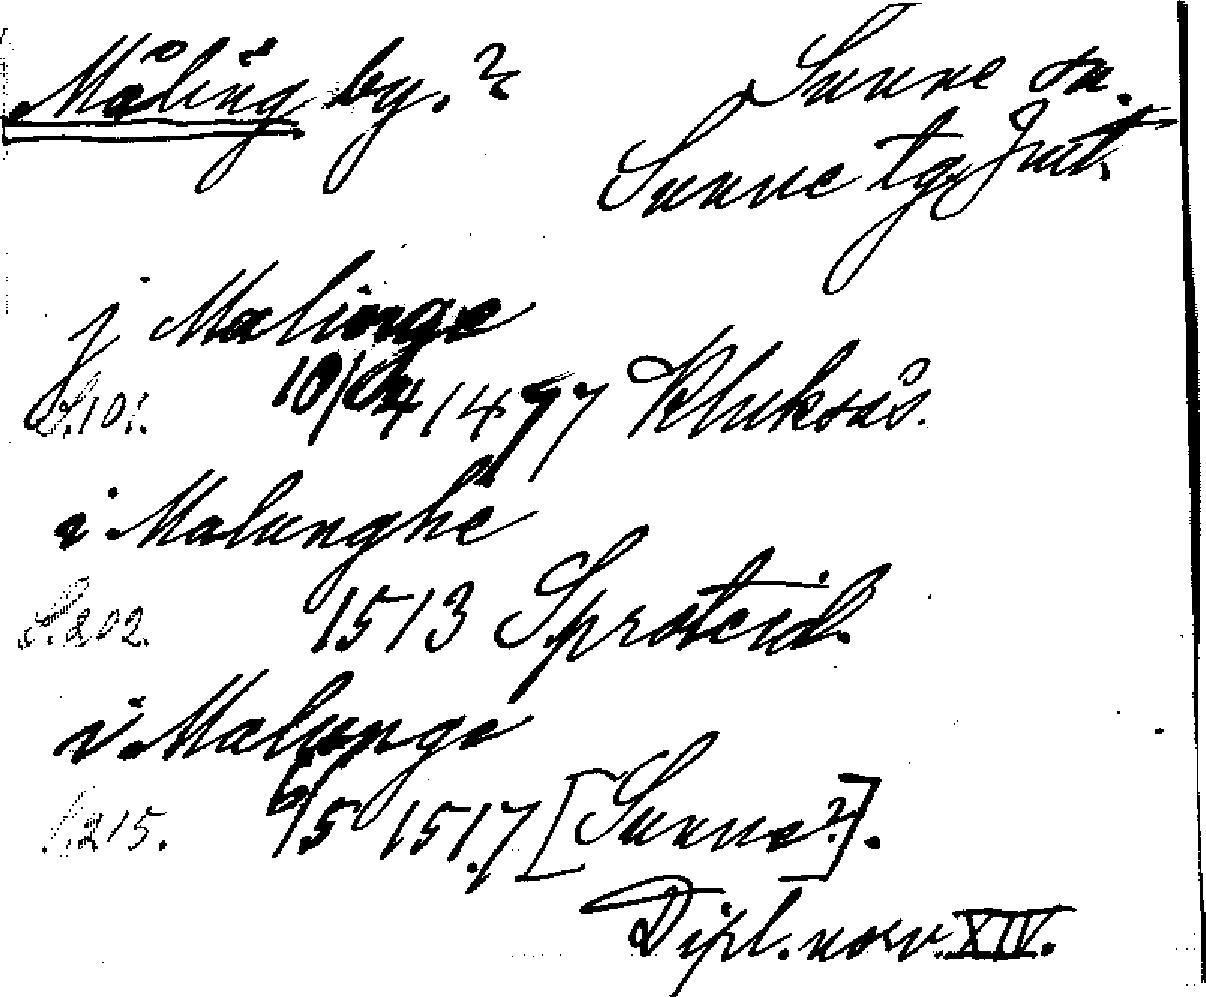 Måling by.?
Sunne sn.
Sunne tg. Jmt.
j Malinge
S. 101. 10/4 1497 Kluksås.
i Malunghe
S. 202. 1513 Sproteid.
i Malunge
S. 215. 6/5 1517 [Sunne?].
Dipl. norv. XIV.